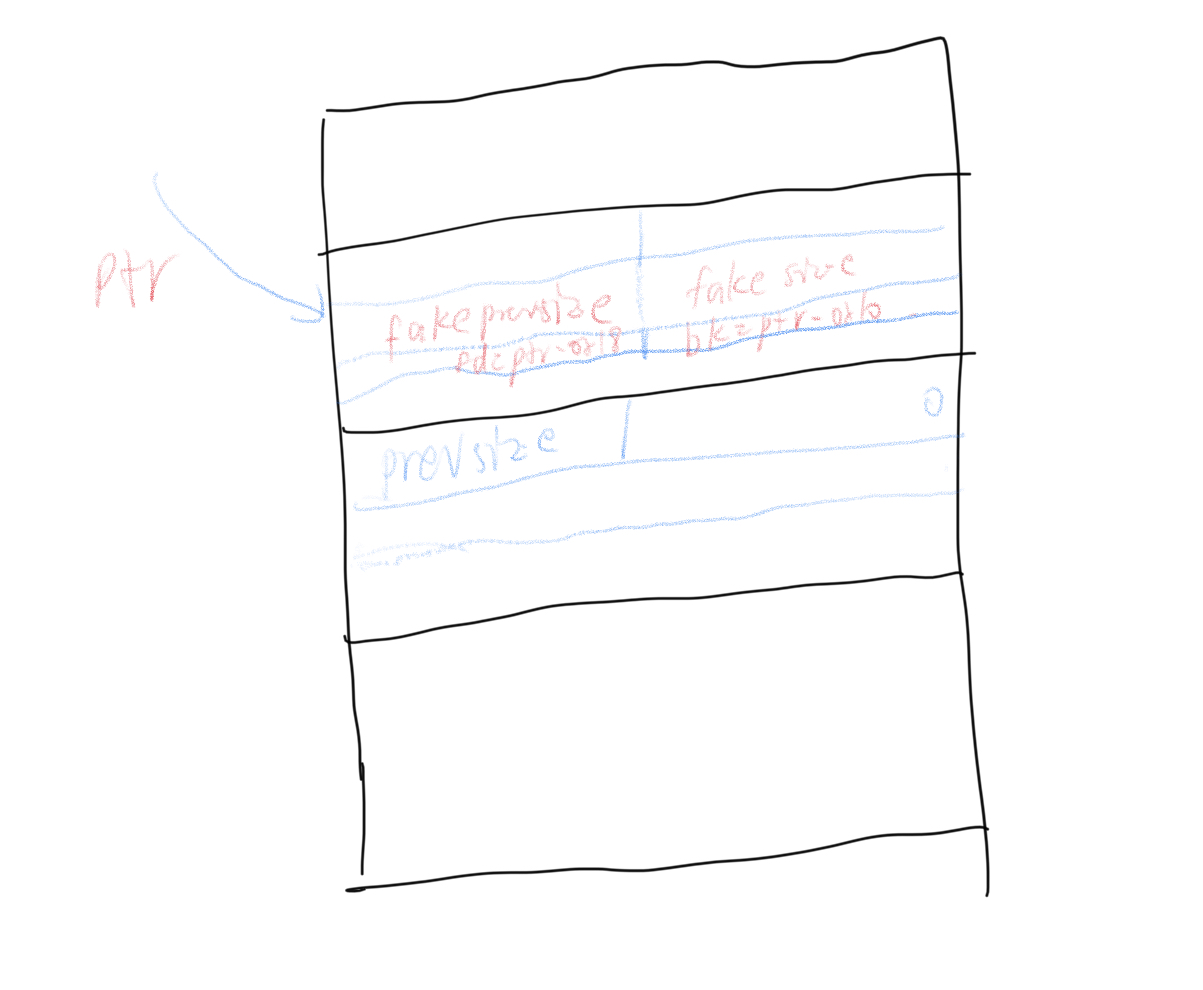 Ptr
fake prevsize
fake size
fd=ptr-0x18
bk=ptr-0x10
prevsize
0